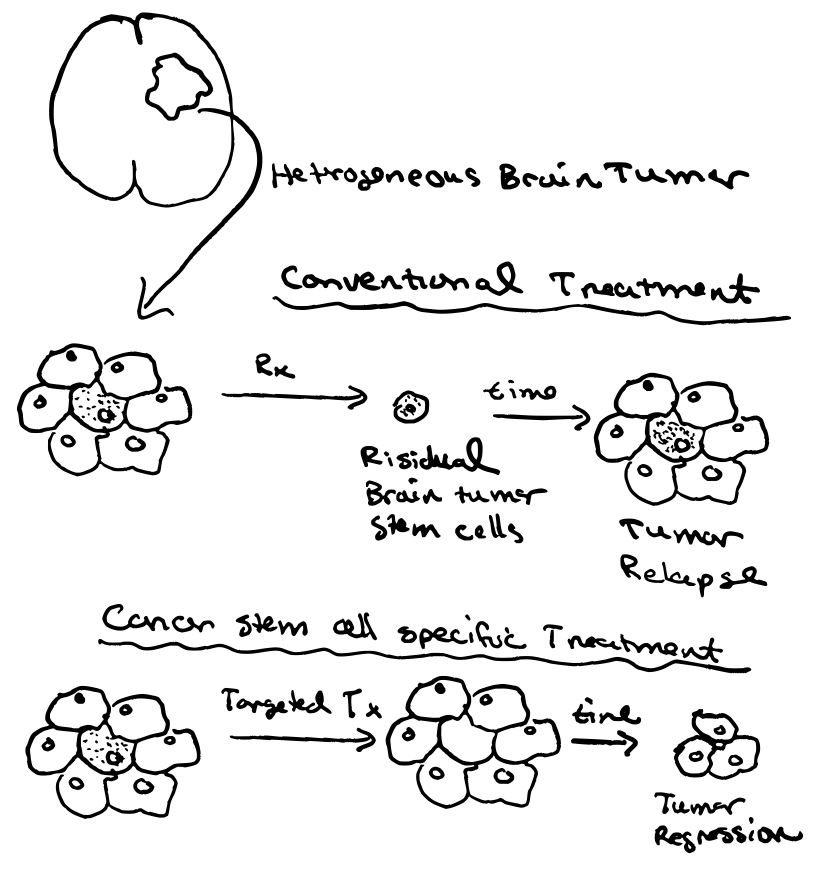 Hetrogeneous Brain Tumor
Conventional Treatment
Rx
time
Risidual
Brain tumor
stem cells
Tumor
Relapse
Cancer stem cell specific Treatment
Targeted Tx
time
Tumor
Regression